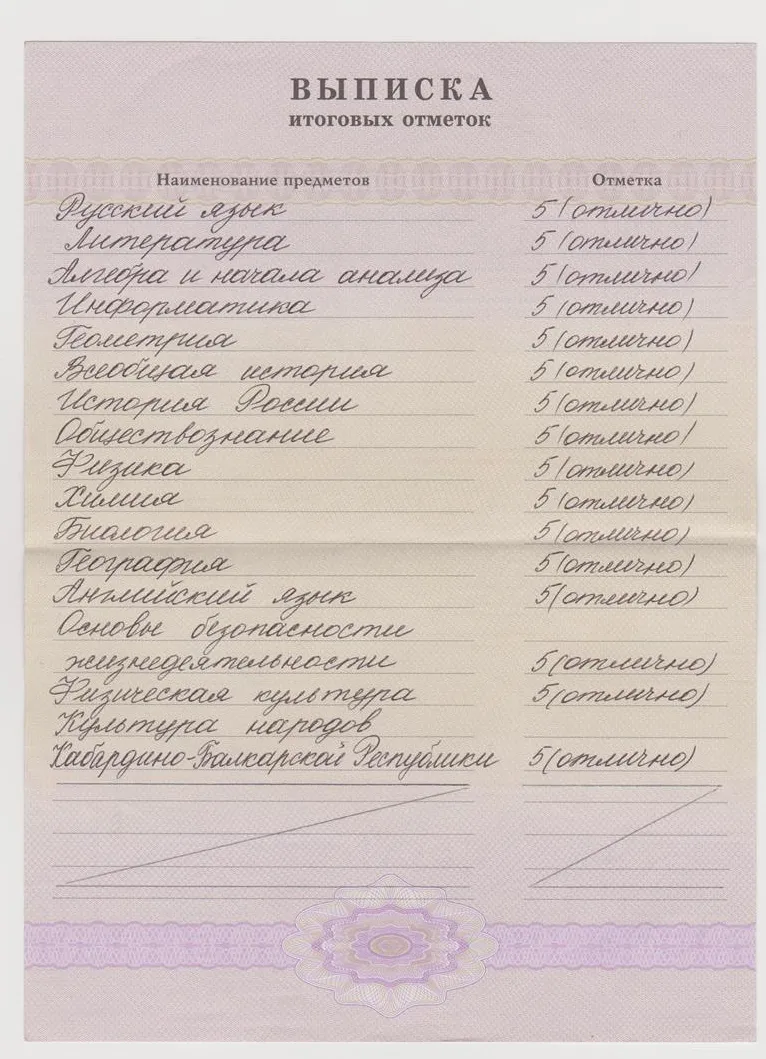 ВЫПИСКА
итоговых отметок
Наименование предметов Отметка
Русский язык 5 (отлично)
Литература 5 (отлично)
Алгебра и начала анализа 5 (отлично)
Информатика 5 (отлично)
Геометрия 5 (отлично)
Всеобщая история 5 (отлично)
История России 5 (отлично)
Обществознание 5 (отлично)
Физика 5 (отлично)
Химия 5 (отлично)
Биология 5 (отлично)
География 5 (отлично)
Английский язык 5 (отлично)
Основы безопасности
жизнедеятельности 5 (отлично)
Физическая культура 5 (отлично)
Культура народов
Кабардино-Балкарской Республики 5 (отлично)